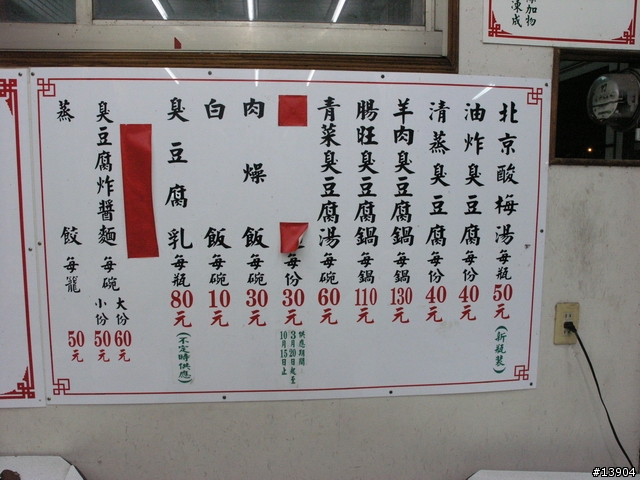 北京酸梅湯每瓶50元(新瓶裝)
油炸臭豆腐每份40元
清蒸臭豆腐每份40元
羊肉臭豆腐鍋每鍋130元
腸旺臭豆腐鍋每鍋110元
青菜臭豆腐湯每碗60元
每份30元
供應期間:
3月20日起至
10月15日止
肉燥飯每碗30元
白飯每碗10元
臭豆腐乳每瓶80元(不定時供應)
臭豆腐炸醬麵每碗
大份60元
小份50元
蒸餃每籠50元
添加物
凍成
#13904